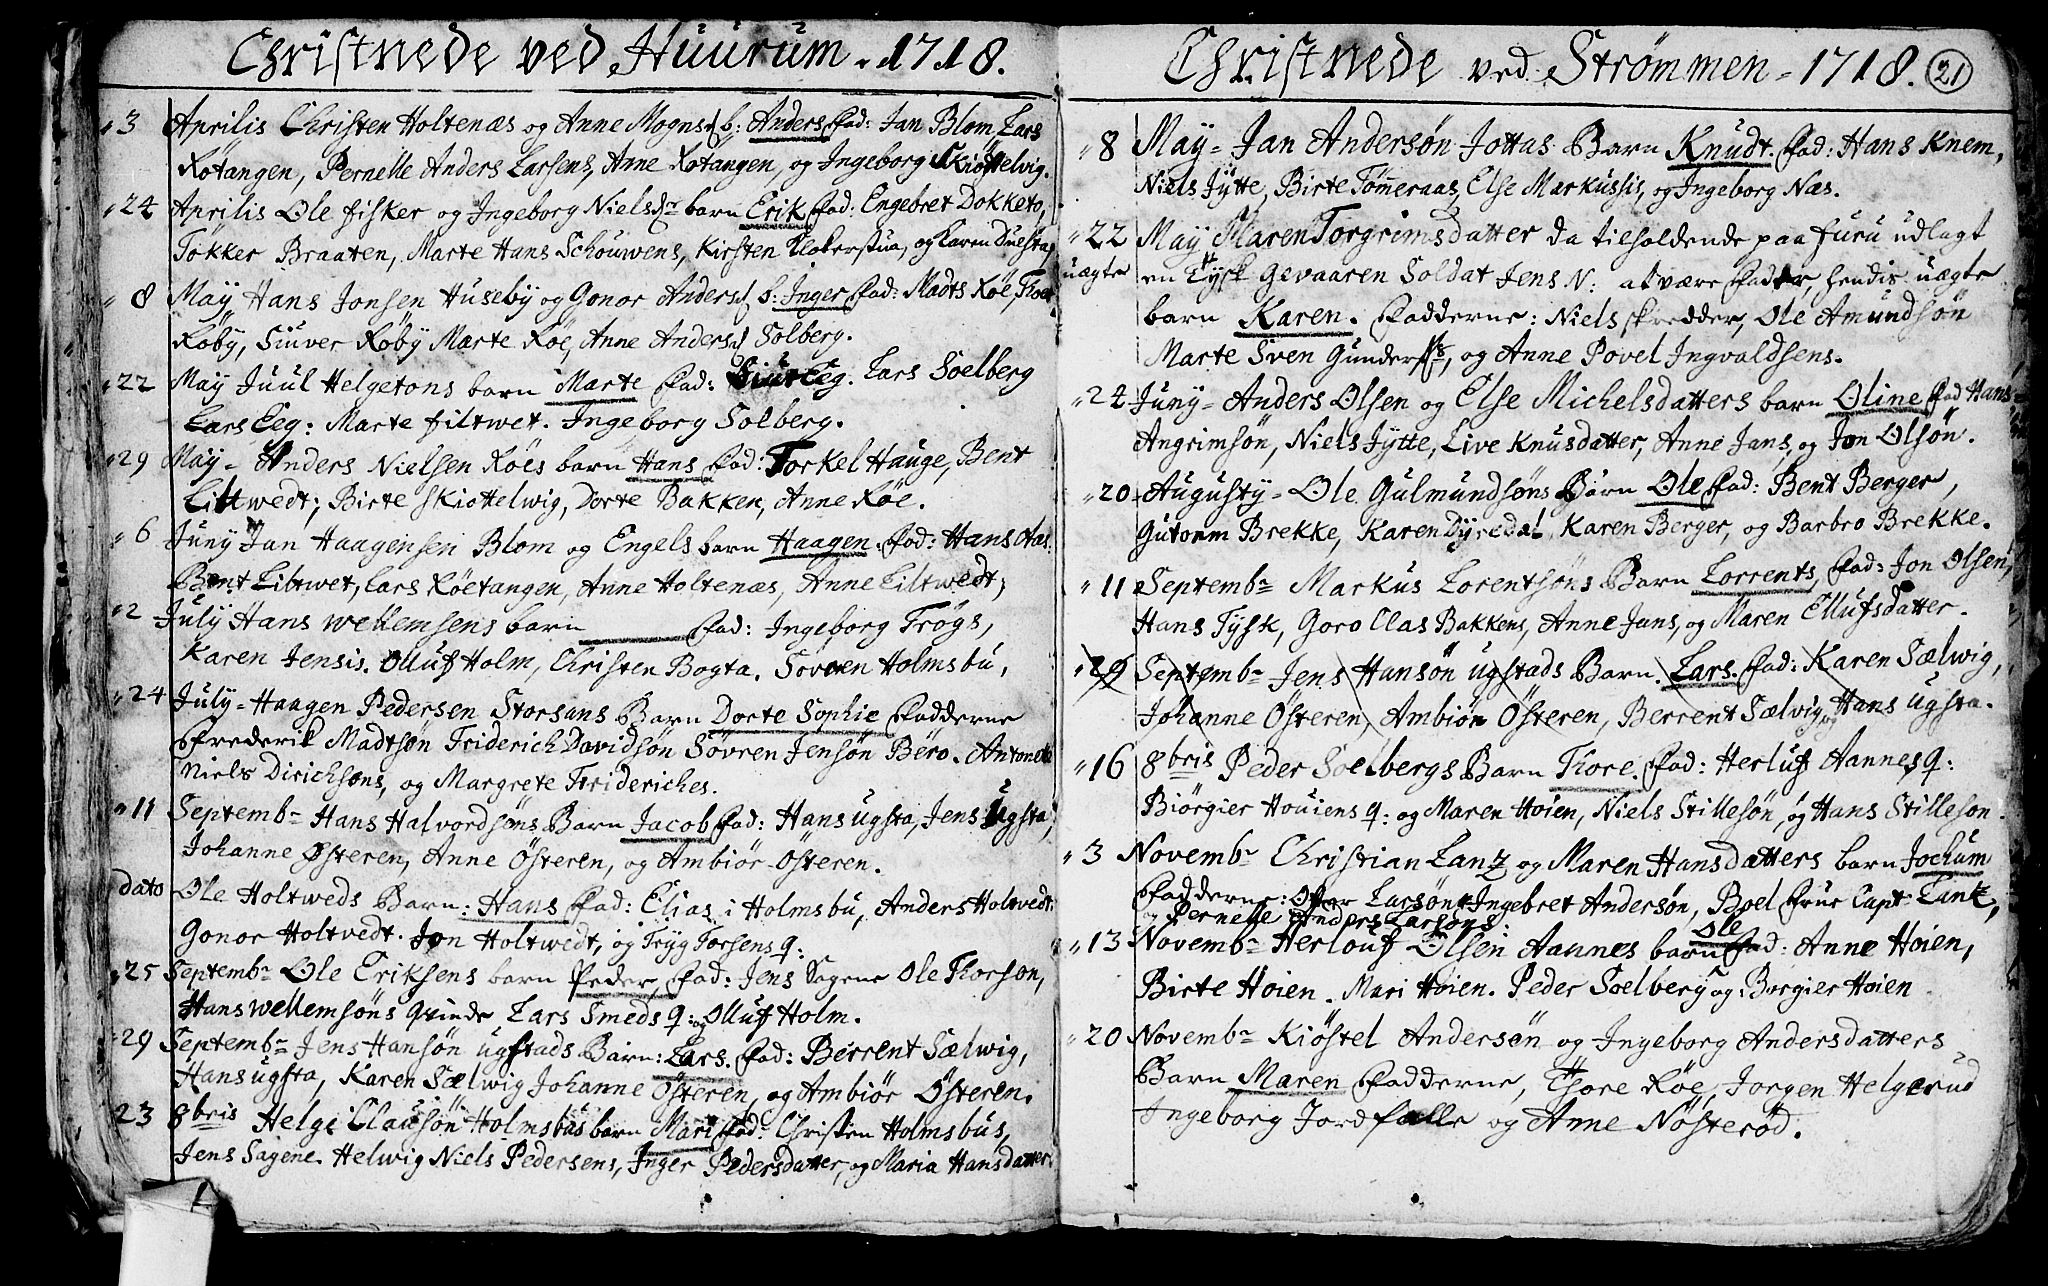 Christnede ved Huurum. 1718.
3 Aprilis Christen Holtenæs og Anne Mognsd b: Anders Fad: Jan Blom, Lars
Rötangen, Pernelle Anders Larsens, Anne Rotangen, og Ingeborg Skiöttelvig.
24 Aprilis Ole fisker og Ingeborg Nielsdr barn Erik Fad: Engebret Dokketo,
Tökker Braaten, Marte Hans Schouwens, Kirsten Klokerstua, og Karen
8 May Hans Jonsen Huseby og Gonor Andersd b: Inger Fad: Madts Röe,
Röby, Siuver Röby Marte Röe, Anne Andersd Solberg.
22 May Juul Helgetons barn Marte Fad: Eeg. Lars Soelberg
Lars Eeg: Marte filtwet. Ingeborg Solberg.
29 May - Anders Nielsen Röes barn Hans Fad: Torkel Hauge, Bent
Littwedt; Birte Skiottelwig, Dorte Bakken, Anne Röe.
6 Juny Jan Haagensen Blom og Engels barn Haagen. Fad: Hans Aas.
Bent Liltwet, Lars Röetangen, Anne Holtenæs, Anne Liltwedt;
2 July Hans Wellemsens barn ______ Fad: Ingeborg Trögs,
Karen Jensis. Olluf Holm, Christen Bogta. Sovren Holmsbu.
24 July - Haagen Pedersen Storsans Barn Dorte Sophie Fadderne
Frederik Madtsön Friderich Davidsön Sövren Jensön Bero.
Niels Dirichsons, og Margrete Frideriches.
11 Septembr Hans Halvordsöns Barn Jacob Fad: Hans Ugsta, Jens Ugsta,
Johanne Østeren, Anne Österen, og Ambiör Osteren.
dato Ole Holtweds Barn: Hans Fad: Elias i Holmsbu, Anders Holtvedt.
Gonor Holtvedt. Jon Holtwedt, og Tryg Torsens q:
25 Septembr Ole Eriksens barn Peder Fad: Jens Sagene Ole Thorson,
Hans Wellemsöns Qvinde Lars Smeds q: og Olluf Holm.
29 Septembr Jens Hansön Ugstads Barn: Lars. Fad: Berrent Sælwig,
Hans Ugsta, Karen Sælwig Johanne Österen, og Ambiör Österen.
23 8bris Helge Clausön Holmsbus barn Mari Fad: Christen Holmsbus,
Jens Sagene. Helwig Niels Pedersens, Inger Pedersdatter, og Maria Hansdatter.
Christnede ved Strømmen - 1718. 21
8 May - Jan Andersøn Jottas Barn Knudt. Fad: Hans Knem,
Niels Jÿtte, Birte Tömeraas, Else Markussis, og Ingeborg Næs.
22 May Maren Torgrimsdatter da tilholdende paa Furu udlagt
uægte en Tysk Gevaaren Soldat Jens N: at være Fader, hendis uægte
barn Karen. Fadderne: Niels skredder, Ole Amundsøn
Marte Sven Gunders, og Anne Povel Ingvaldsens.
24 Juny - Anders Olsen og Else Michelsdatters barn Oline Fad Hans
Angrimsön, Niels Jytte, Live Knusdatter, Anne Jans, og Jon Olsön.
20 Augusty - Ole Gulmundsøns Børn Ole Fad: Bent Berger,
Gutorm Brekke, Karen Dyredal Karen Berger, og Barbro Brekke.
11 Septembr Markus Lorentsöns Barn Lorrents, Fad: Jon Olsen,
Hans Tysk, Goro Clas Bakkens, Anne Jans, og Maren Ellufsdatter.
29 Septembr Jens Hansön Ugstads Barn. Lars. Fad: Karen Sælwig,
Johanne Østeren, Ambiör Österen, Berrent Sælvig, og Hans Ugsta.
16 8bris Peder Soelbergs Barn Thore. Fad: Herluf Aannes q:
Biörgier Houiens q: og Maren Hoien, Niels Stillesön, og Hans Stilleson.
3 Novembr Christian Lantz og Maren Hansdatters barn Jochum
Fadderne: Larsön Ingebret Andersøn, Boel Frue Capt Lantz,
og Pernelle Anders Larsöns.
13 Novembr Herlouf Olsen Aannes barn Ole Fad: Anne Høien,
Birte Høien. Mari Høien. Peder Soelberg og Börgier Høien
20 Novembr Kiöstel Andersön og Ingeborg Andersdatters
Barn Maren Fadderne, Thore Röe, Jorgen Helgerud
Ingeborg Jordfalle og Anne Nösterød.